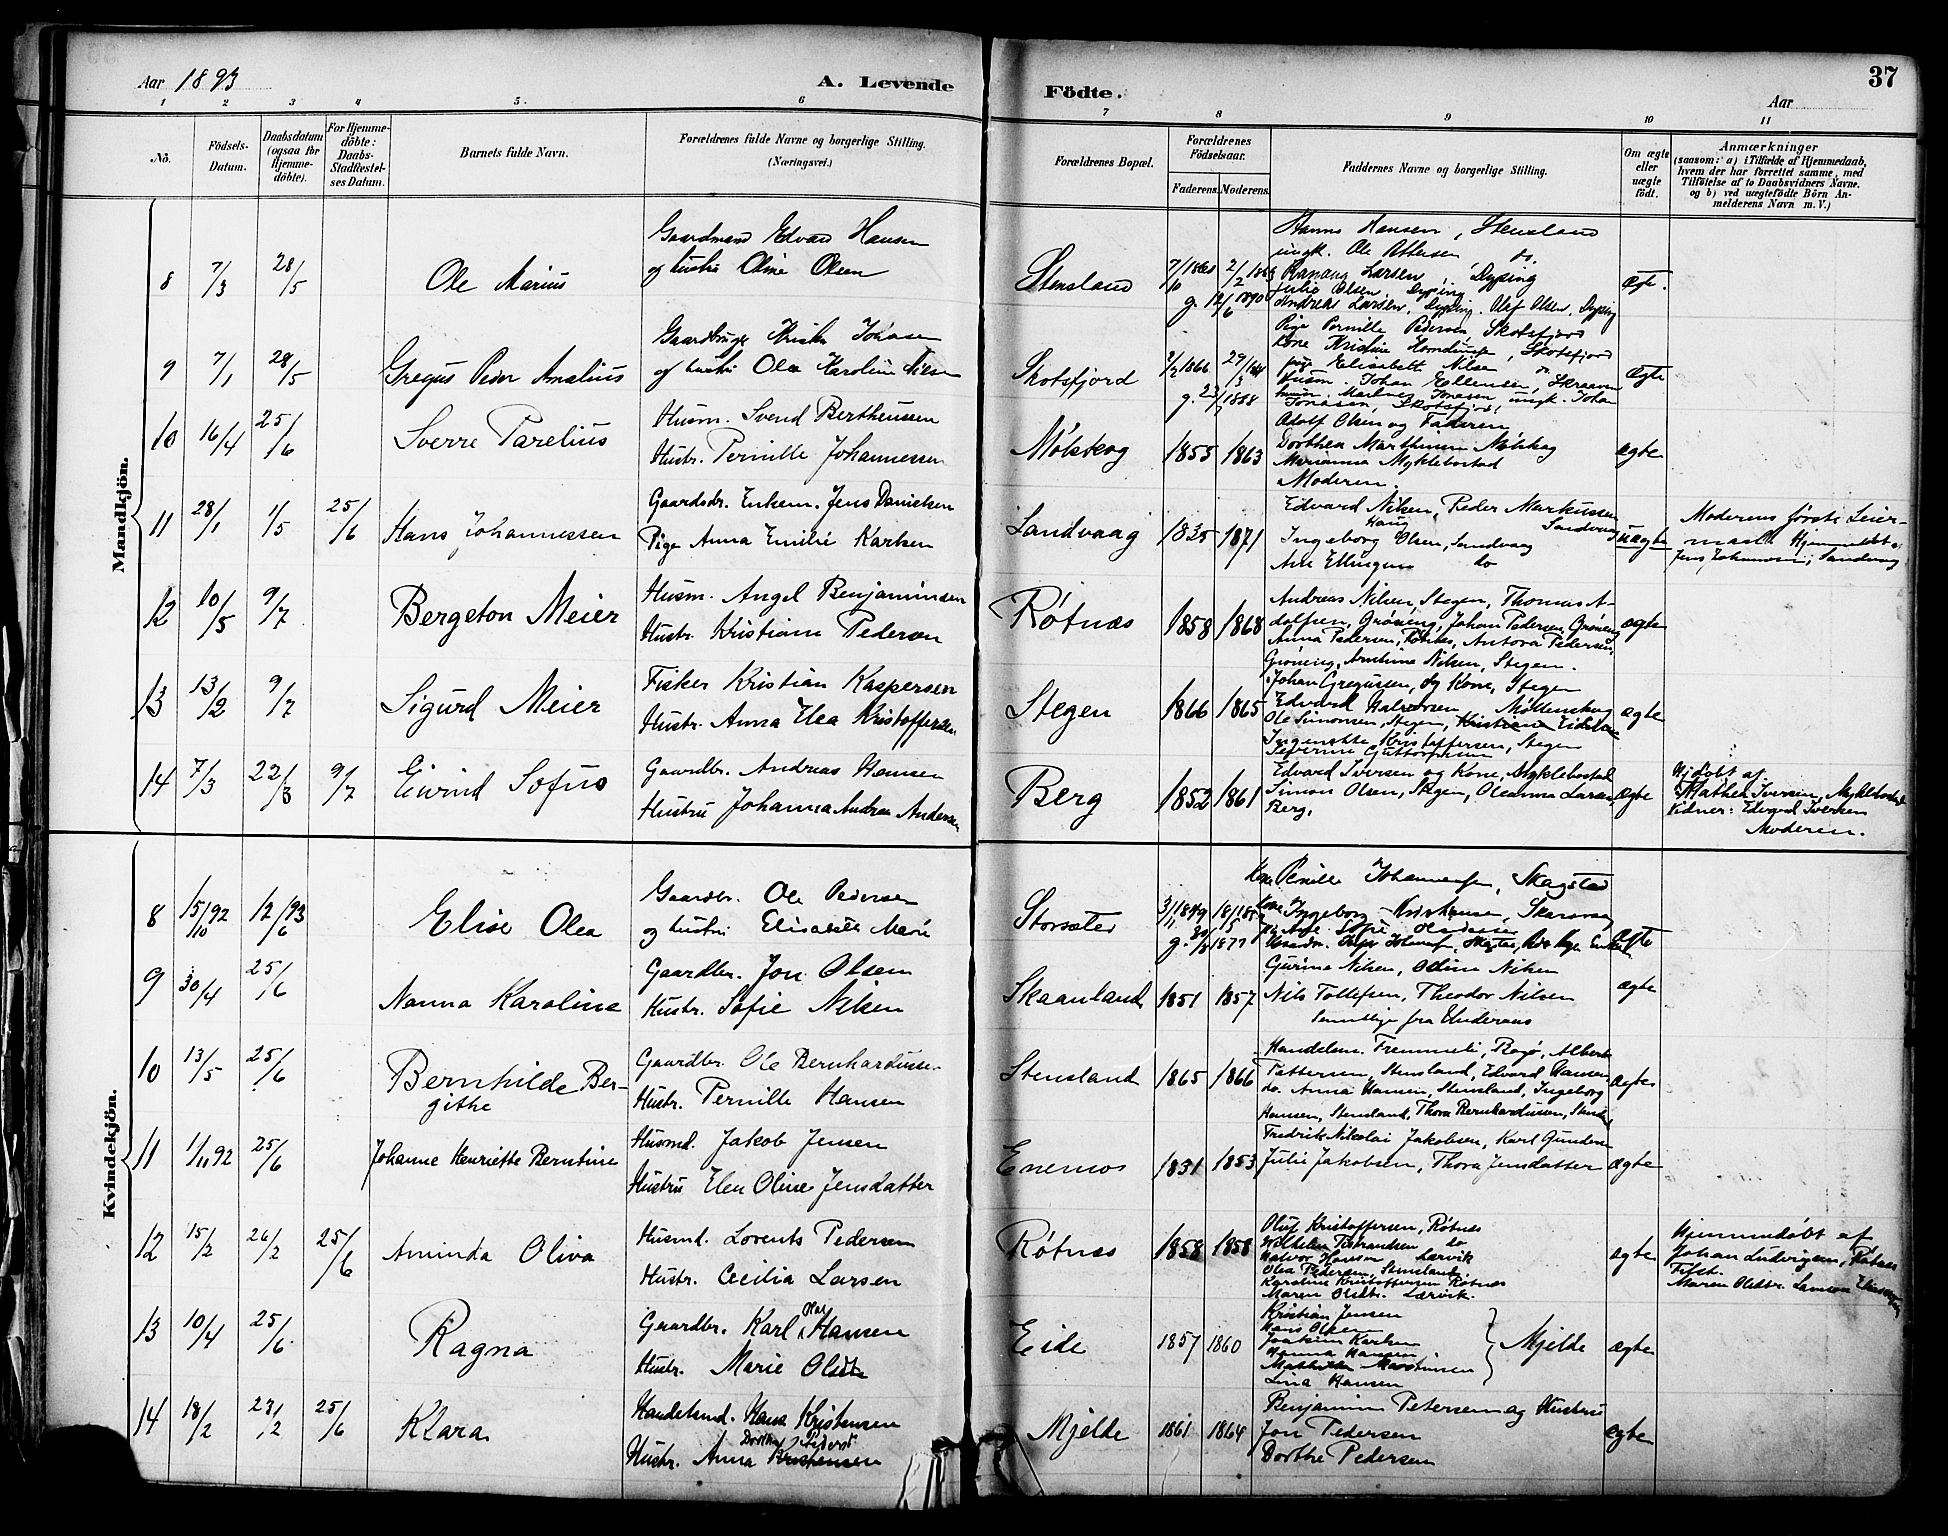 Aar 1893
A. Levende Födte.
Aar
37
1 2 3 4 5. 6 7 8 9 10 11
Nö.
Födsels-Datum.
Daabsdatum (ogsaa for Hjemme-döbte).
For Hjemme-döbte: Daabs-Stadfæstel-ses Datum.
Barnets fulde Navn.
Forældrenes fulde Navne og borgerlige Stilling. (Næringsvei.)
Forældrenes Bopæl.
Forældrenes Födselsaar.
Faderens. Moderens.
Faddernes Navne og borgerlige Stilling.
Om ægte eller uægte födt.
Anmærkninger
(saasom: a) i Tilfælde af Hjemmedaab,
hvem der har forrettet samme, med
Tilföielse af to Daabsvidners Navne.
og b) ved uægtefödte Börn An-
melderens Navn m. V.)
Mandkjön.
8 7/3 28/5 Ole Marius
Gaardmand Edvard Hansen
og hustru Oline Olsen
Stensland
Hanns Hansen, Stensland
ungk. Ole do.
Larsen, Dyping
Julie Olsen, Dyping
Andreas Larsen, Dyping. Olaf Olsen, Dyping
g. 12/6 1890
Ægte.
9 7/1 28/5 Gregus Peder Amalius
og hustru Ole Karoline Nilsen
Skotsfjord 1/2 1866
Pige Pernille Pedersen Skotsfjord
Kone Kristine Skotsfjord
pige Elisabett Nilsen do
Husm. Johan Ellensen, Skraaven
Jonasen, ungk. Johan
Jonasen, Skotsfjord,
Ægte
10 16/4 25/6 Sverre Parelius
Husm. Svend Bertheussen
Hustr. Pernille Johannessen
Mölsberg 1853 1863
Adolf Olsen og Faderen
Dorthea Marthinsen
Marianna Myklebostad
Moderen.
ægte
11 28/1 1/5 25/6 Hans Johannessen
Gaardsbr. Enkem. Jens Danielsen
Pige Anna Emilie Karlsen
Sandvaag 1835 1871
Edvard Nilsen, Peder Markussen
Haug Sandvaag
Ingeborg Olsen, Sandvaag
Ellingsen do
uægte
Moderens förste Leier-
maal Hjemmedöbt af
Jens Johansen, Sandvaag
12 10/5 9/7 Bergeton Meier
Husm. Angel Benjaminsen
Hustr. Kristiane Pedersen
Rötnæs 1858 1868
Andreas Nilsen, Stegen, Thomas A-
dolfsen, Gröning, Johan Pedersen, Gröning
Anna Pedersen, Rötnes, Antora Pedersen,
Gröning, Arntine Nilsen, Stegen.
ægte
13 13/2 9/7 Sigurd Meier
Fisker Kristian Kaspersen
Hustr. Anna Elea Kristoffersen
Stegen 1866 1865
Johan Gregussen, og Kone, Stegen
Edvard Halvorsen
Ole Simonsen, Stegen, Kristiane
Kristoffersen, Stegen
Severine Guttormsen
ægte
14 7/3 22/3 9/7 Eivind Sofus
Gaardbr. Andreas Hansen
Hustru Johanna Andrea Andersen
Berg 1852 1861
Edvard Iversen og Kone, Myklebostad
Simon Olsen, Stegen, Oleanna Larsen
Berg.
ægte
Hjdöbt af
Mathea Iversen, Myklebostad
Vidner: Edvard Iversen
Moderen.
Kvindekjön.
8 15/10 92 12/6 93 Elise Olea
Gaardbr. Ole Pedersen
og hustru Elisabeth Marie
Storsæter 3/11 1849
Kone Pernille Johannesen, Skagstad
Kone Ingeborg Kristiansen,
ægte
9 30/4 25/6 Nanna Karoline
Gaardbr. Jon Olsen
Hustr. Sofie Nilsen
Skaanland 1851 1857
Gurina Nilsen, Odine Nilsen
Nils Tollefsen, Theodor Nilsen
Samtlige fra
ægte
10 13/5 25/6 Bernhilde Ber-
githe
Gaardbr. Ole Bernhardussen
Hustr. Pernille Hansen
Stensland 1865 1866
Handelsm. Albert
Pettersen, Stensland, Edvard Hansen
do. Anna Hansen, Stensland, Ingeborg
Hansen, Stensland, Thora Bernhardussen,
ægte
11 1/11 92 25/6 Johanne Henriette Berntine
Husmd. Jakob Jensen
Hustru Elen Oline Jensdatter
Enemos 1831 1853
Fredrik Nikolai Jakobsen, Karl
Julie Jakobsen, Thora Jensdatter
ægte
12 15/2 26/2 25/6 Aminda Oliva
Husmd. Lorents Pedersen
Hustr. Cecilia Larsen
Rötnæs 1858 1858
Oluf Kristoffersen, Rötnæs
Vilhelm do
Halvor Hansen Lærvik
Olea Pedersen, Stensland
Karoline Kristoffersen Rötnæs
Maren Olsdtr. Lærvik.
ægte
Hjemmedöbt af
Johan Ludvigsen, Rötnæs
Maren Olsdtr.
13 10/4 25/6 Ragna
Gaardbr. Karl Olai Hansen
Hustr. Marie Olsdtr
Eide 1857 1860
Kristian Jensen
Hans Olsen
Joakim Karlsen
Hanna Hansen
Mathilde Martinsen
Lina Hansen
Mjelde
ægte
14 18/2 23/2 25/6 Klara
Handelsmd. Hans Kristensen
Hustr. Anna Dorthea Pedersd. Kristensen
Mjelde 1861 1864
Benjamin Petersen og Hustru
Jon Pedersen
Dorthe Pedersen
ægte